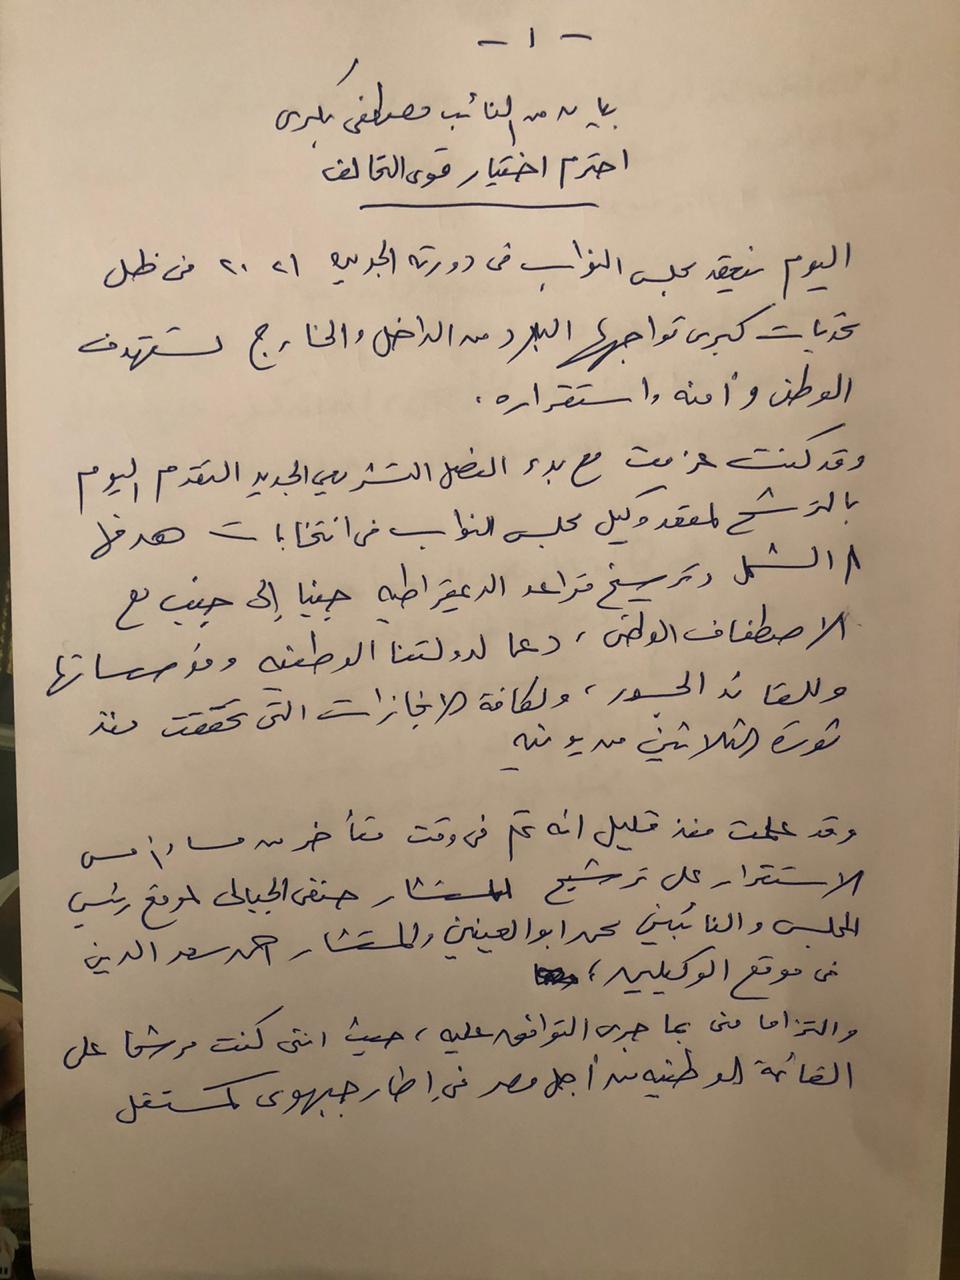 - ١ -
بيان من النائب مصطفى بكرى
احترم اختيار قوى التحالف
اليوم ينعقد مجلس النواب فى دورته الجديده ٢٠٢١ فى ظل
تحديات كبرى تواجهها البلاد من الداخل والخارج تستهدف
الوطن وأمنه واستقراره .
وقد كنت عزمت مع بدء الفصل التشريعي الجديد التقدم اليوم
بالترشح لمقعد وكيل مجلس النواب فى انتخابات هدفها
الشمل وترسيخ قواعد الديمقراطيه جنبا إلى جنب مع
الاصطفاف الوطنى ، دعما لدولتنا الوطنيه ومؤسساتها
وللقائد الجسور ، ولكافة الانجازات التى تحققت منذ
ثورة الثلاثين من يونيه
وقد علمت منذ قليل انه تم فى وقت متأخر من مساء أمس
الاستقرار على ترشيح المستشار حنفى الجبالى لموقع رئيس
المجلس والنائبين محمد ابو العينين والمستشار احمد سعد الدين
فى موقع الوكيلين ،
والتزاما منى بما جرى التوافق عليه ، حيث اننى كنت مرشحا على
القائمة الوطنيه من أجل مصر فى إطار جبهوى كمستقل